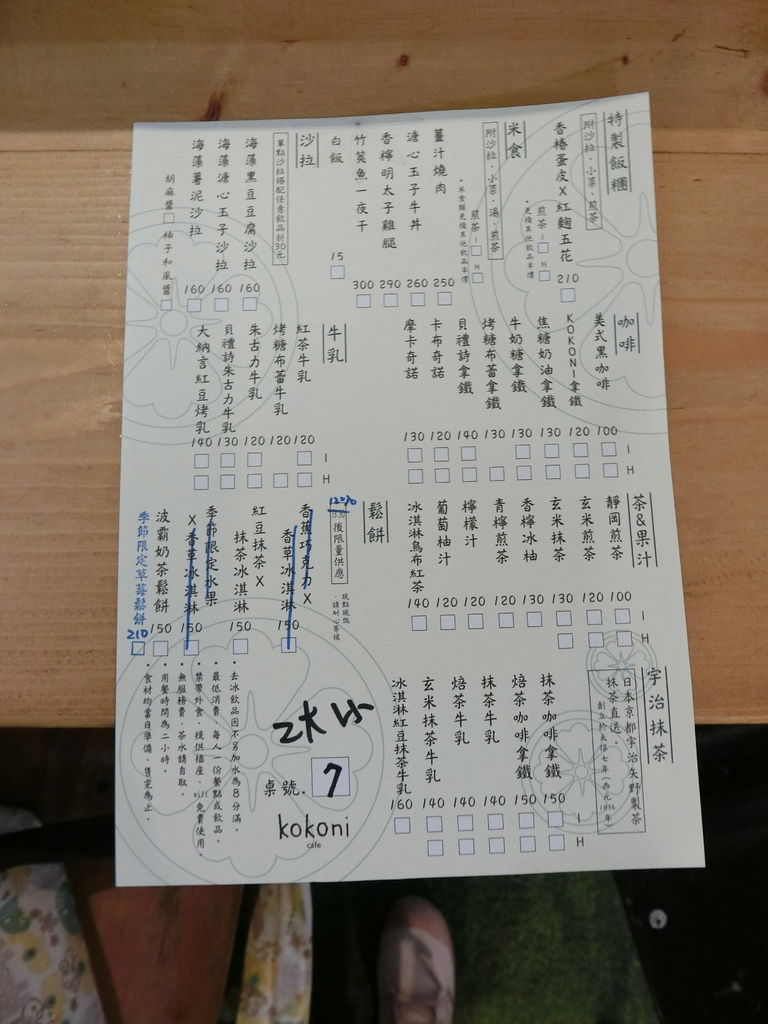 特製飯糰
附沙拉、小菜、煎茶
香椿蛋皮X紅麴五花 210
煎茶 I H
・更換其他飲品半價
米食
附沙拉、小菜、湯、煎茶
煎茶 I H
・米食類更換其他飲品半價
薑汁燒肉 250
溏心玉子牛丼 260
香檸明太子雞腿 290
竹筴魚一夜干 300
白飯 15
沙拉
單點沙拉搭配任意飲品折30元
海藻黑豆豆腐沙拉 160
海藻溏心玉子沙拉 160
海藻薯泥沙拉 160
胡麻醬 柚子和風醬
咖啡
美式黑咖啡 100
KOKONI拿鐵 120
焦糖奶油拿鐵 130
牛奶糖拿鐵 130
烤糖布蕾拿鐵 130
貝禮詩拿鐵 140
卡布奇諾 120
摩卡奇諾 130
I
H
牛乳
紅茶牛乳 120
烤糖布蕾牛乳 120
朱古力牛乳 120
貝禮詩朱古力牛乳 130
大納言紅豆烤乳 140
I
H
茶&果汁
靜岡煎茶 100
玄米煎茶 120
玄米抹茶 130
香檸冰柚 130
青檸煎茶 120
檸檬汁 120
葡萄柚汁 120
冰淇淋烏布紅茶 140
I
H
鬆餅
後限量供應
現點現做，請耐心等候
香蕉巧克力X
香草冰淇淋 150
紅豆抹茶X
抹茶冰淇淋 150
季節限定水果
X香草冰淇淋 150
波霸奶茶鬆餅 150
季節限定草莓鬆餅 210
宇治抹茶
日本京都宇治矢野製茶
抹茶直送。
抹茶咖啡拿鐵 150
焙茶咖啡拿鐵 150
抹茶牛乳 140
焙茶牛乳 140
玄米抹茶牛乳 140
冰淇淋紅豆抹茶牛乳 160
I
H
桌號. 7
kokoni
cafe
・去冰飲品因不另加水為8分滿。
・最低消費，每人一份餐點或飲品。
・禁帶外食，提供插座，wifi免費使用。
・無服務費，茶水請自取。
・用餐時間為二小時。
・食材均當日準備，售完為止。